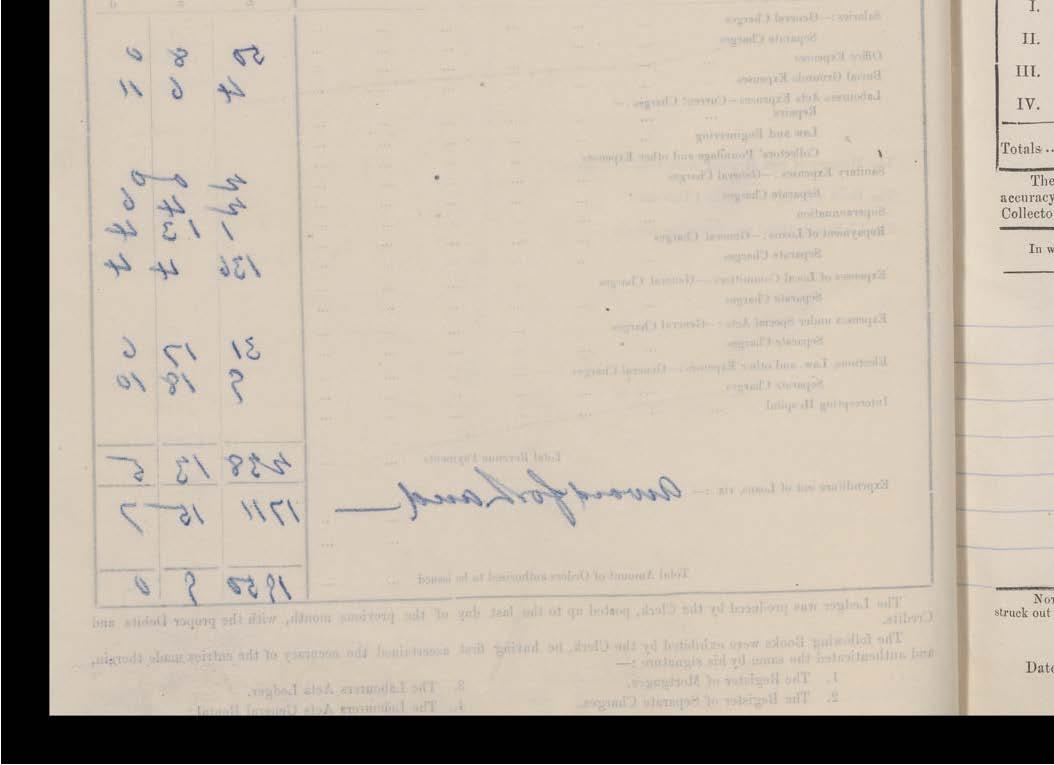 Salaries :—General Charges
Separate Charges
Office Expenses 50 8 0
Burial Grounds Expenses
Labourers Acts Expenses—Current Charges
Repairs
Law and Engineering
Collectors' Poundage and other Expenses
Sanitary Expenses :—General Charges
Separate Charges
Superannuation
Repayment of Loans :—General Charges
Separate Charges
Expenses of Local Committees :—General Charges
Separate Charges
Expenses under Special Acts :—General Charges
Separate Charges 31 17 6
Elections, Law, and other Expenses :—General Charges
Separate Charges 9 18 10
Intercepting Hospital
Total Revenue Payments 238 13 5
Expenditure out of Loans, viz. :— Award for Land 1711 15 7
Total Amount of Orders authorised to be issued 1950 9 0
The Ledger was produced by the Clerk, posted up to the last day of the previous month, with the proper Debits and
Credits.
The following Books were exhibited by the Clerk, he having first ascertained the accuracy of the entries made therein,
and authenticated the same by his signature :—
1. The Register of Mortgages. 3. The Labourers Acts Ledger.
2. The Register of Separate Charges. 4. The Labourers Acts General Rental
I.
II.
III.
IV.
Totals..
The
accuracy
Collecto
In w
Not
struck out
Date